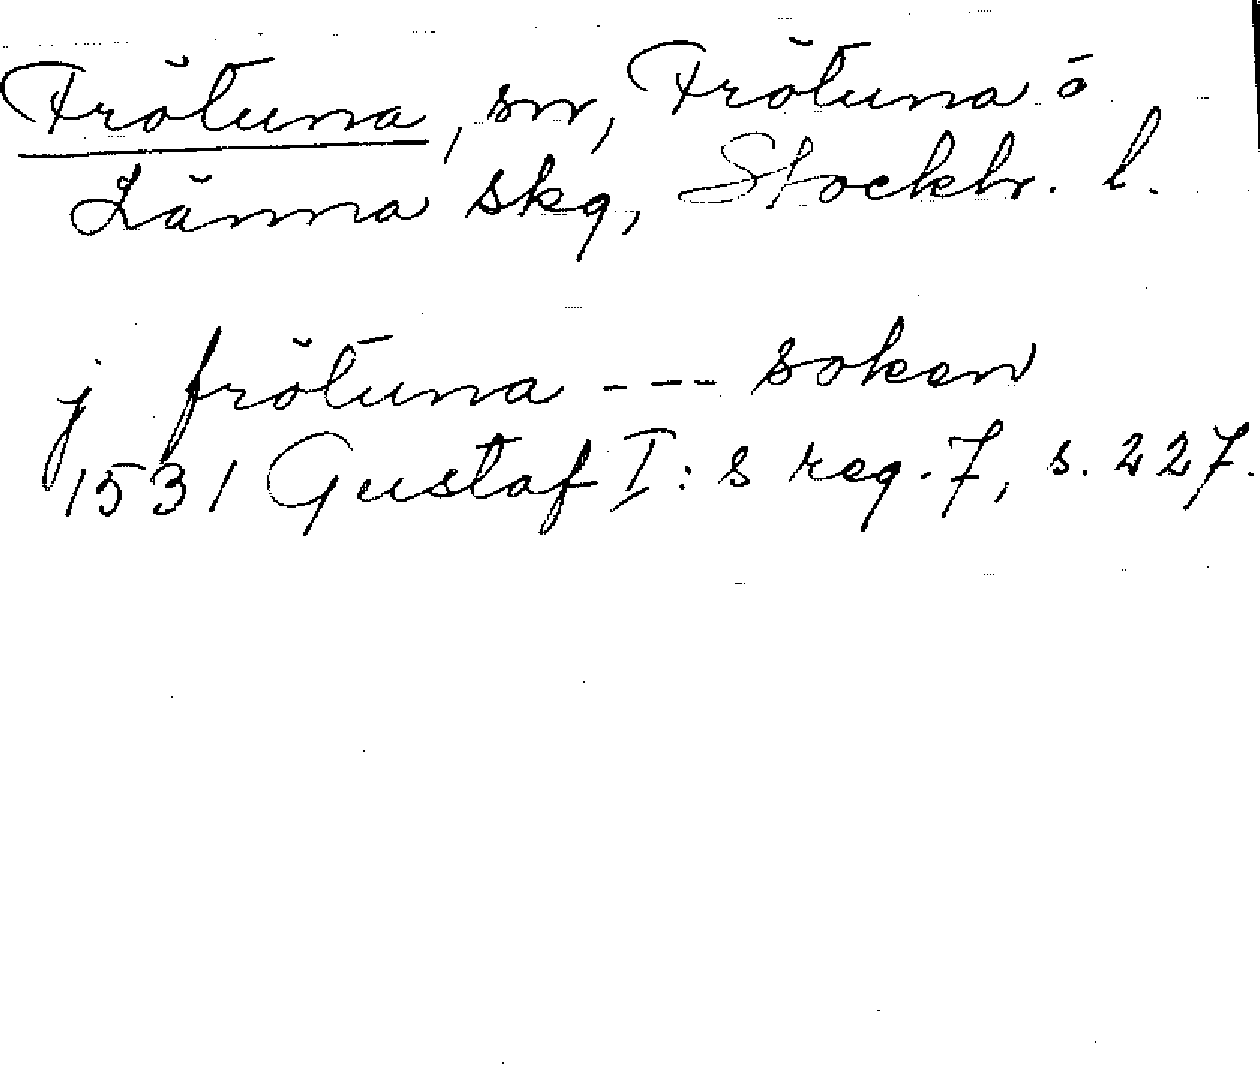 Frötuna, sn, Frötuna o
Länna skg, Stockh. l.
j frötuna --- soken
1531 Gustaf I:s reg. 7, s. 227.